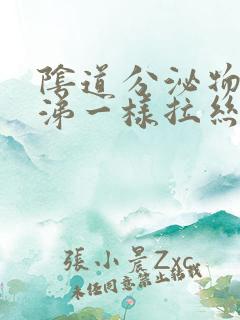 陰道分泌物
涕一樣拉絲
張小晨Zxc
未经同意禁止转载